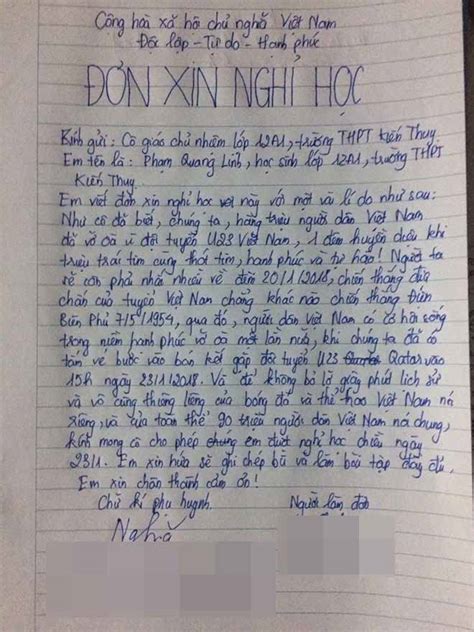 Cộng hoà xã hội chủ nghĩa Việt Nam
Độc lập - Tự do - Hạnh phúc
ĐƠN XIN NGHỈ HỌC
Kính gửi : Cô giáo chủ nhiệm lớp 12A1, trường THPT Kiến Thụy
Em tên là : Phạm Quang Linh, học sinh lớp 12A1, trường THPT
Kiến Thụy
Em viết đơn xin nghỉ học này với một vài lí do như sau:
Như cô đã biết, chúng ta, hàng triệu người dân Việt Nam
đã vỡ oà vì đội tuyển U23 Việt Nam, 1 đêm huyền diệu khi
triệu trái tim cùng thót tim, hạnh phúc và tự hào! Người ta
sẽ còn phải nhắc nhiều về đêm 20/1/2018, chiến thắng
chân của tuyển Việt Nam chẳng khác nào chiến thắng Điện
Biên Phủ 7/5/1954, qua đó, người dân Việt Nam có cơ hội sống
trong niềm hạnh phúc vỡ oà một lần nữa, khi chúng ta đã có
tấm vé bước vào bán kết gặp đội tuyển U23 Qatar vào
15h ngày 23/1/2018. Và để không bỏ lỡ giây phút lịch sử
và vô cùng thiêng liêng của bóng đá và thể thao Việt Nam nói
riêng, và của toàn thể 90 triệu người dân Việt Nam nói chung,
kính mong cô cho phép em được nghỉ học chiều ngày
23/1. Em xin hứa sẽ ghi chép bù và làm bài tập đầy đủ.
Em xin chân thành cảm ơn!
Chữ kí phụ huynh Người làm đơn